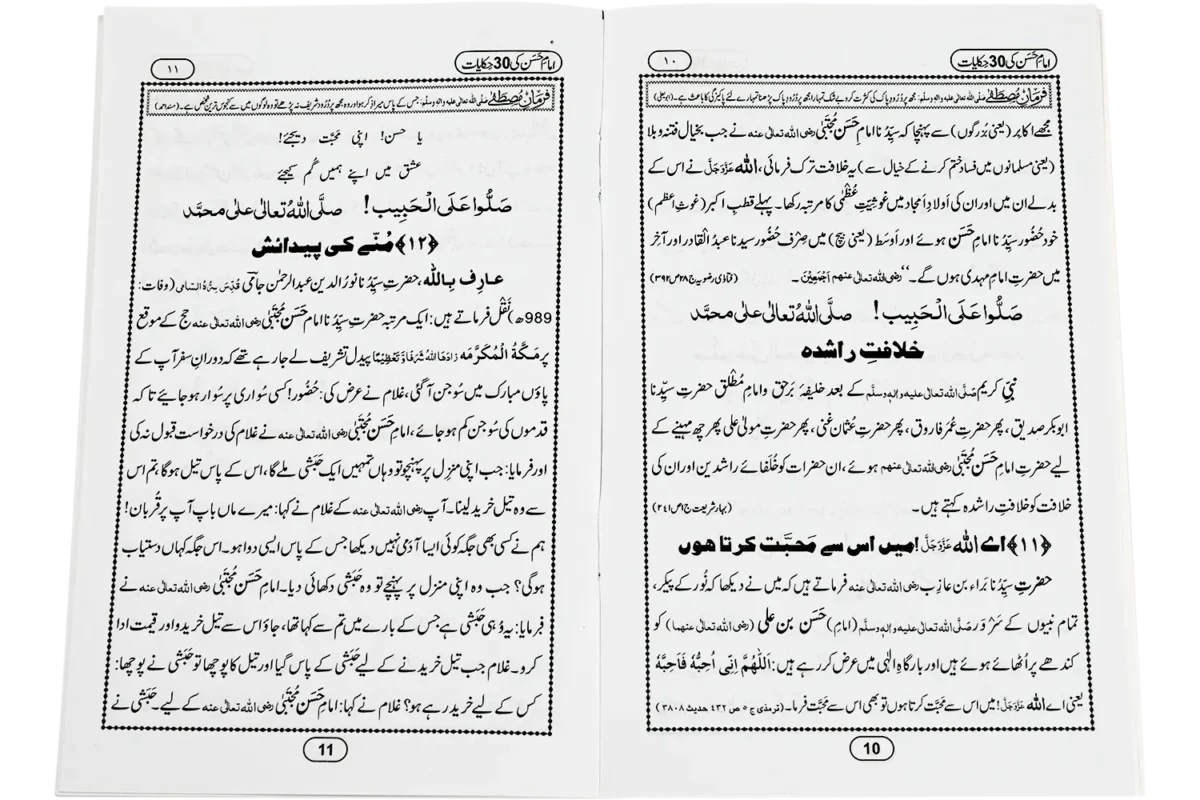 امام حسن کی 30 حکایات
۱۰
فرمانِ مصطفٰے صلی اللہ تعالٰی علیہ والہٖ وسلّم: مجھ پر دُرُودِ پاک کی کثرت کرو بے شک تمہارا مجھ پر دُرُودِ پاک پڑھنا تمہارے لئے پاکیزگی کا باعث ہے۔ (ابو یعلی)
مجھے اکابِر (یعنی بُزرگوں) سے پہنچا کہ سیِّدُنا امام حَسَن مُجْتَبٰی رضی اللہ تعالٰی عنہ نے جب بخیالِ فتنہ و بلا
(یعنی مسلمانوں میں فساد ختم کرنے کے خیال سے) یہ خلافت ترک فرمائی، اللہ عَزَّوَجَلَّ نے اس کے
بدلے ان میں اور ان کی اَولادِ اَمجاد میں غوثِیتِ عُظْمٰی کا مرتبہ رکھا۔ پہلے قطبِ اکبر (غوثِ اعظم)
خود حُضُور سیِّدُنا امام حَسَن ہوئے اور اَوسَط (یعنی بیچ) میں صِرْف حُضُور سیدنا عبدُ القادر اور آخر
میں حضرتِ امام مہدی ہوں گے۔‘‘ رضی اللہ تعالٰی عنہم اَجْمَعِیْنَ۔ (فتاوٰی رضویہ ج۲۸ ص۳۹۲)
صَلُّوا عَلَی الْحَبِیب! صلَّی اللہُ تعالٰی علٰی محمَّد
خلافتِ راشدہ
نبیِّ کریم صَلَّی اللہ تعالٰی علیہ والہٖ وسلَّم کے بعد خلیفۂ بَرحق و امامِ مُطْلَق حضرتِ سیِّدنا
ابوبکر صدیق، پھر حضرتِ عُمَر فاروق، پھر حضرتِ عثمانِ غنی، پھر حضرتِ مولیٰ علی پھر چھ مہینے کے
لیے حضرتِ امام حَسَن مُجْتَبٰی رضی اللہ تعالٰی عنہم ہوئے، ان حضرات کو خُلَفائے راشدین اور ان کی
خلافت کو خلافتِ راشدہ کہتے ہیں۔ (بہارِ شریعت ج۱ ص۲۴۱)
﴿۱۱﴾ اے اللہ عَزَّوَجَلَّ! میں اس سے مَحبَّت کرتا ہوں
حضرتِ سیِّدُنا بَراء بن عازِب رضی اللہ تعالٰی عنہ فرماتے ہیں کہ میں نے دیکھا کہ نُور کے پیکر،
تمام نبیوں کے سَرْوَر صَلَّی اللہ تعالٰی علیہ والہٖ وسلَّم (امام) حَسَن بن علی (رضی اللہ تعالٰی عنہما) کو
کندھے پر اُٹھائے ہوئے ہیں اور بارگاہِ الٰہی میں عرض کر رہے ہیں: اَللّٰھُمَّ اِنِّی اُحِبُّهٗ فَاَحِبَّهٗ
یعنی اے اللہ عَزَّوَجَلَّ! میں اس سے مَحَبَّت کرتا ہوں تو بھی اس سے مَحَبَّت فرما۔ (ترمذی ج ۵ ص ۴۳۲ حدیث ۳۸۰۸)
10
امام حسن کی 30 حکایات
۱۱
فرمانِ مصطفٰے صلی اللہ تعالٰی علیہ والہٖ وسلّم: جس کے پاس میرا ذکر ہو اور وہ مجھ پر دُرُود شریف نہ پڑھے تو وہ لوگوں میں سے کنجوس ترین شخص ہے۔ (مسند احمد)
یا حسن! اپنی مَحَبَّت دیجئے!
عشق میں اپنے ہمیں گُم کیجئے
صَلُّوا عَلَی الْحَبِیب! صلَّی اللہُ تعالٰی علٰی محمَّد
﴿۱۲﴾ مُنّے کی پیدائش
عارِف بِاللہ، حضرتِ سیِّدُنا نورُ الدین عبدُ الرحمٰن جامی قُدِّسَ سِرُّہُ السَّامی (وفات:
989ھ) نَقْل فرماتے ہیں: ایک مرتبہ حضرتِ سیِّدُنا امام حَسَن مُجْتَبٰی رضی اللہ تعالٰی عنہ حج کے موقع
پر مَکَّۃُ الْمُکَرَّمَہ زَادَھَا اللہُ شَرَفًا وَّ تَعْظِیْمًا پیدل تشریف لے جا رہے تھے کہ دورانِ سفر آپ کے
پاؤں مبارک میں سُوجن آگئی، غلام نے عرض کی: حُضُور! کسی سُواری پر سُوار ہو جایئے تا کہ
قدموں کی سُوجن کم ہو جائے، امام حَسَن مُجْتَبٰی رضی اللہ تعالٰی عنہ نے غلام کی درخواست قبول نہ کی
اور فرمایا: جب اپنی منزل پر پہنچو تو وہاں تمہیں ایک حَبَشی ملے گا، اس کے پاس تیل ہوگا، تم اس
سے وہ تیل خرید لینا۔ آپ رضی اللہ تعالٰی عنہ کے غلام نے کہا: میرے ماں باپ آپ پر قُربان!
ہم نے کسی بھی جگہ کوئی ایسا آدمی نہیں دیکھا جس کے پاس ایسی دوا ہو۔ اس جگہ کہاں دستیاب
ہوگی؟ جب وہ اپنی منزل پر پہنچے تو وہ حَبَشی دکھائی دیا۔ امام حَسَن مُجْتَبٰی رضی اللہ تعالٰی عنہ نے
فرمایا: یہ وُہی حَبَشی ہے جس کے بارے میں تم سے کہا تھا، جاؤ اس سے تیل خریدو اور قیمت ادا
کرو۔ غلام جب تیل خریدنے کے لیے حَبَشی کے پاس گیا اور تیل کا پوچھا تو حَبَشی نے پوچھا:
کس کے لیے خرید رہے ہو؟ غلام نے کہا: امام حَسَن مُجْتَبٰی رضی اللہ تعالٰی عنہ کے لیے۔ حَبَشی نے
11